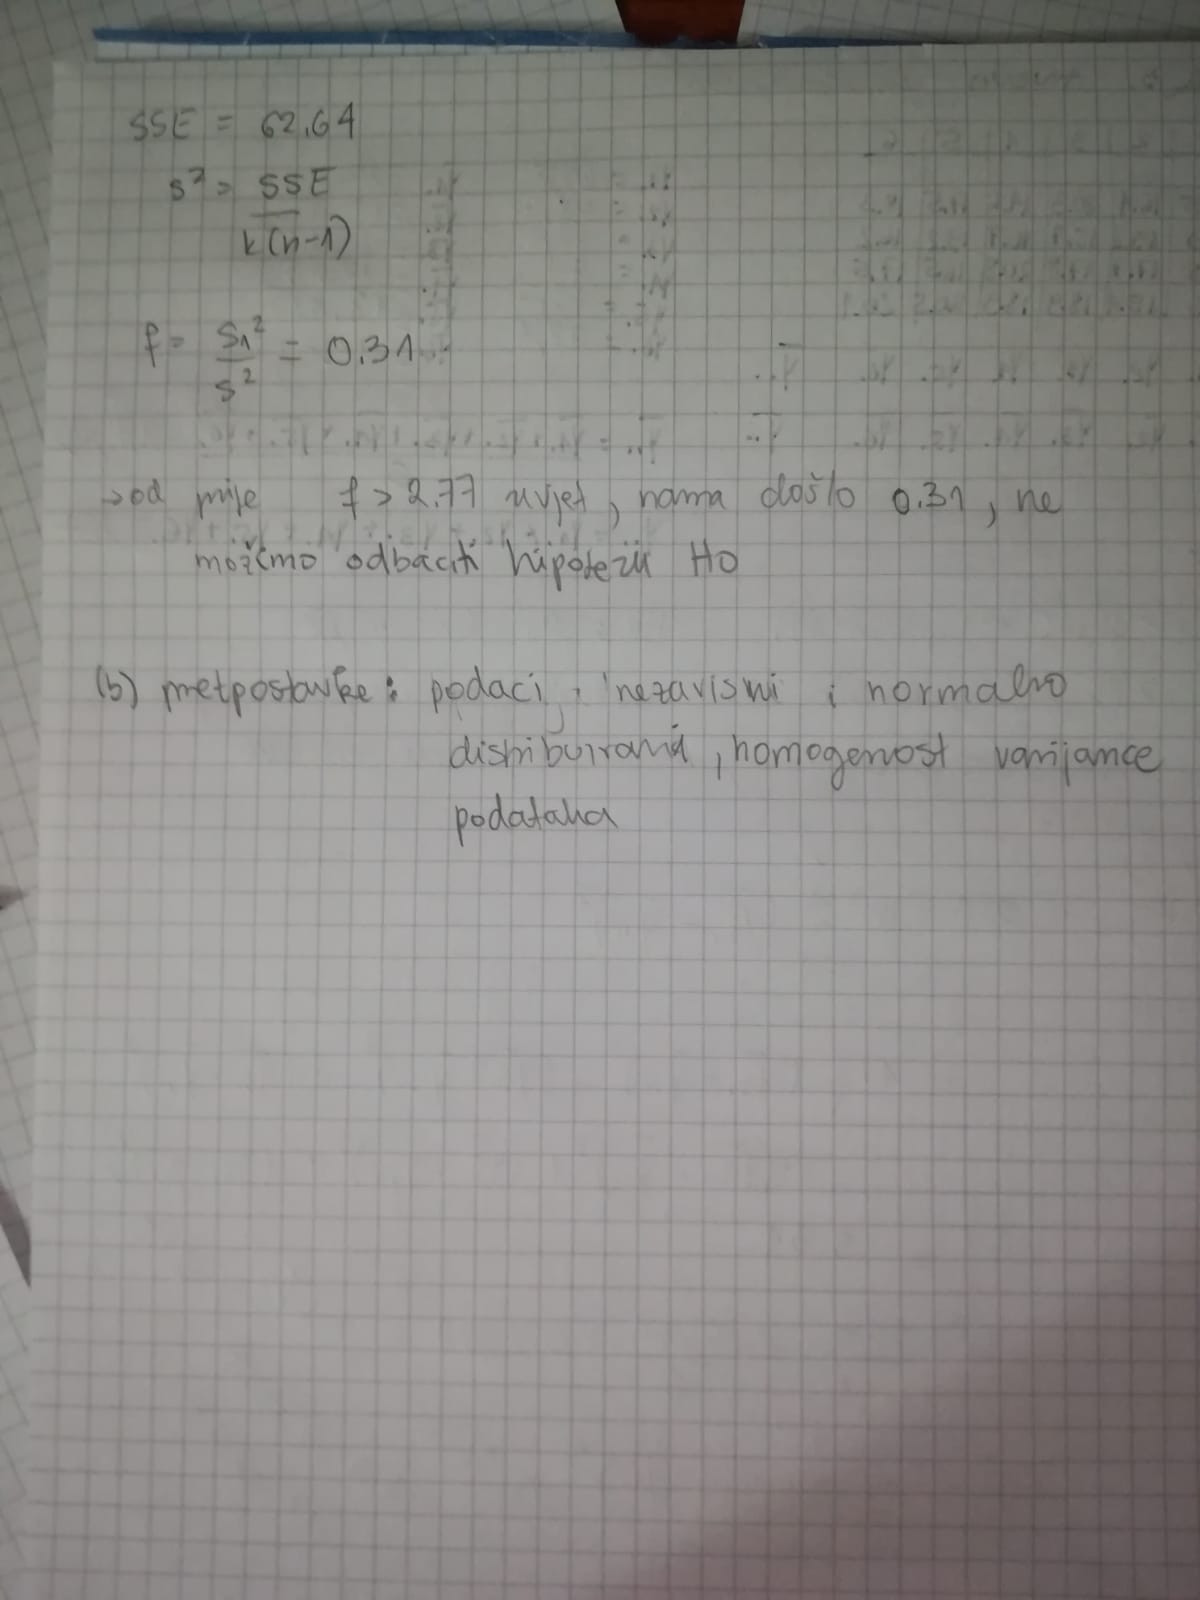 SSE = 62.64
s² = SSE
k(n-1)
f = s₁² = 0.31
s²
→ od prije f > 2.77 uvjet, nama došlo 0.31, ne
možemo odbaciti hipotezu H0
(b) pretpostavke: podaci, nezavisni i normalno
distribuirani, homogenost varijance
podataka